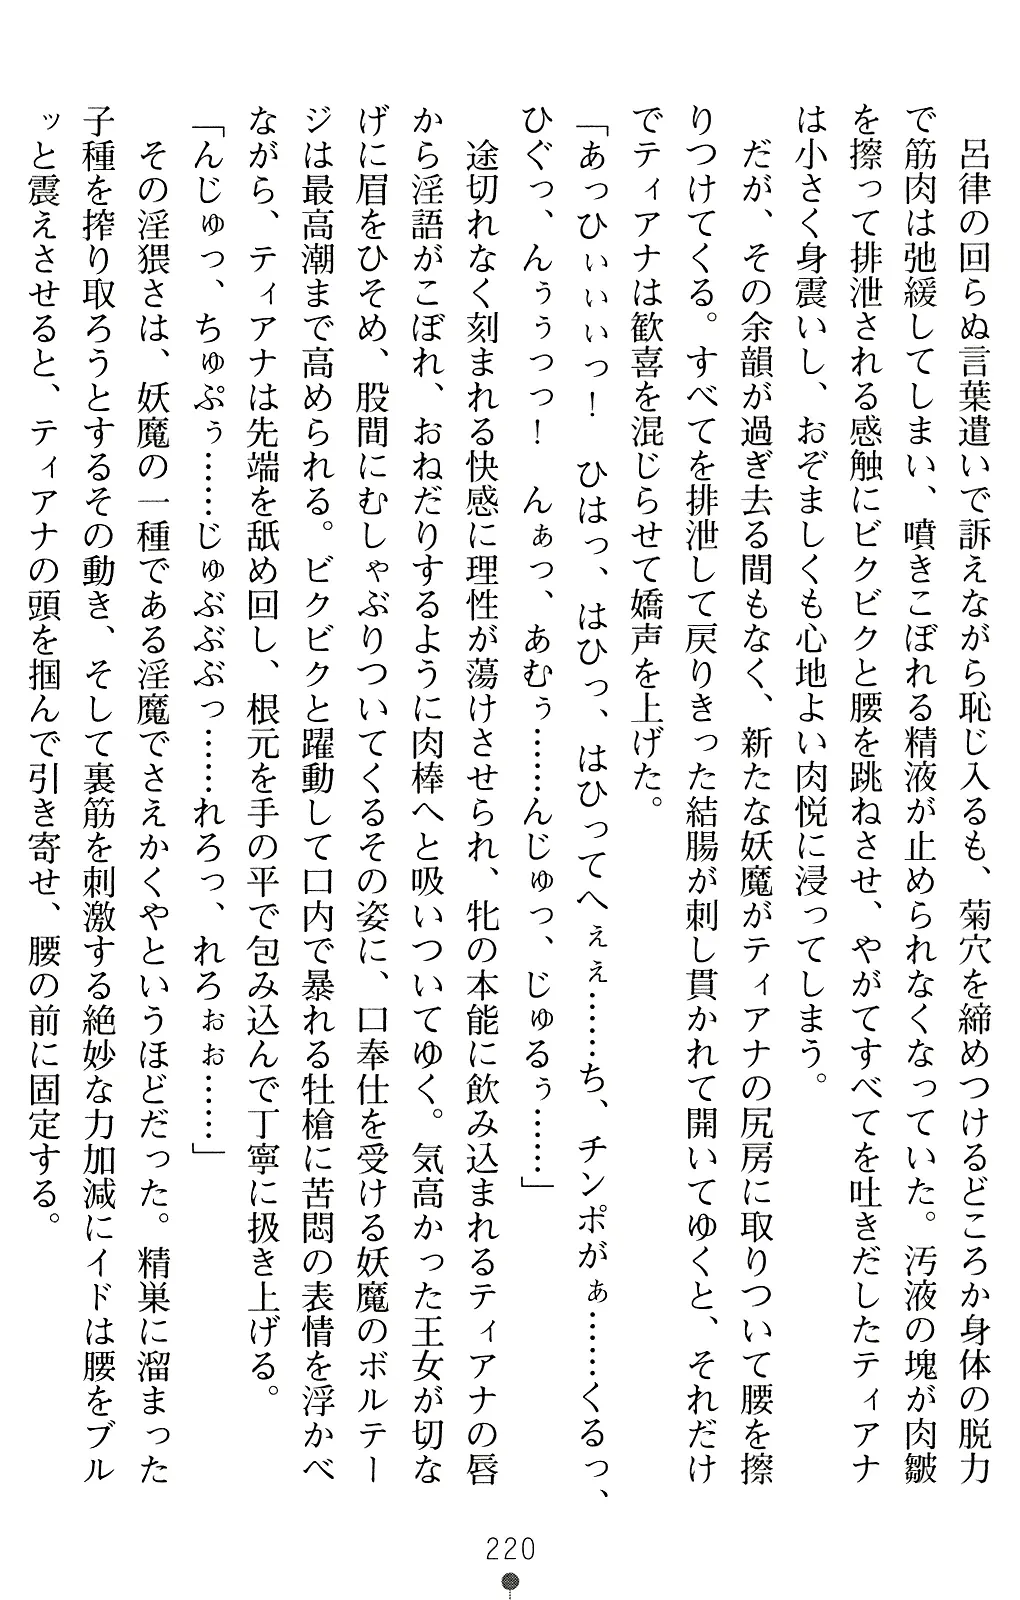 呂律の回らぬ言葉遣いで訴えながら恥じ入るも、菊穴を締めつけるどころか身体の脱力
で筋肉は弛緩してしまい、噴きこぼれる精液が止められなくなっていた。汚液の塊が肉皺
を擦って排泄される感触にビクビクと腰を跳ねさせ、やがてすべてを吐きだしたティアナ
は小さく身震いし、おぞましくも心地よい肉悦に浸ってしまう。
だが、その余韻が過ぎ去る間もなく、新たな妖魔がティアナの尻房に取りついて腰を擦
りつけてくる。すべてを排泄して戻りきった結腸が刺し貫かれて開いてゆくと、それだけ
でティアナは歓喜を混じらせて嬌声を上げた。
「あっひぃぃぃっ！　ひはっ、はひっ、はひってへぇぇ……ち、チンポがぁ……くるっ、
ひぐっ、んぅぅっっ！　んぁっ、あむぅ……んじゅっ、じゅるぅ……」
途切れなく刻まれる快感に理性が蕩けさせられ、牝の本能に飲み込まれるティアナの唇
から淫語がこぼれ、おねだりするように肉棒へと吸いついてゆく。気高かった王女が切な
げに眉をひそめ、股間にむしゃぶりついてくるその姿に、口奉仕を受ける妖魔のボルテー
ジは最高潮まで高められる。ビクビクと躍動して口内で暴れる牡槍に苦悶の表情を浮かべ
ながら、ティアナは先端を舐め回し、根元を手の平で包み込んで丁寧に扱き上げる。
「んじゅっ、ちゅぷぅ……じゅぶぶぶっ……れろっ、れろぉぉ……」
その淫猥さは、妖魔の一種である淫魔でさえかくやというほどだった。精巣に溜まった
子種を搾り取ろうとするその動き、そして裏筋を刺激する絶妙な力加減にイドは腰をブル
ッと震えさせると、ティアナの頭を掴んで引き寄せ、腰の前に固定する。
220